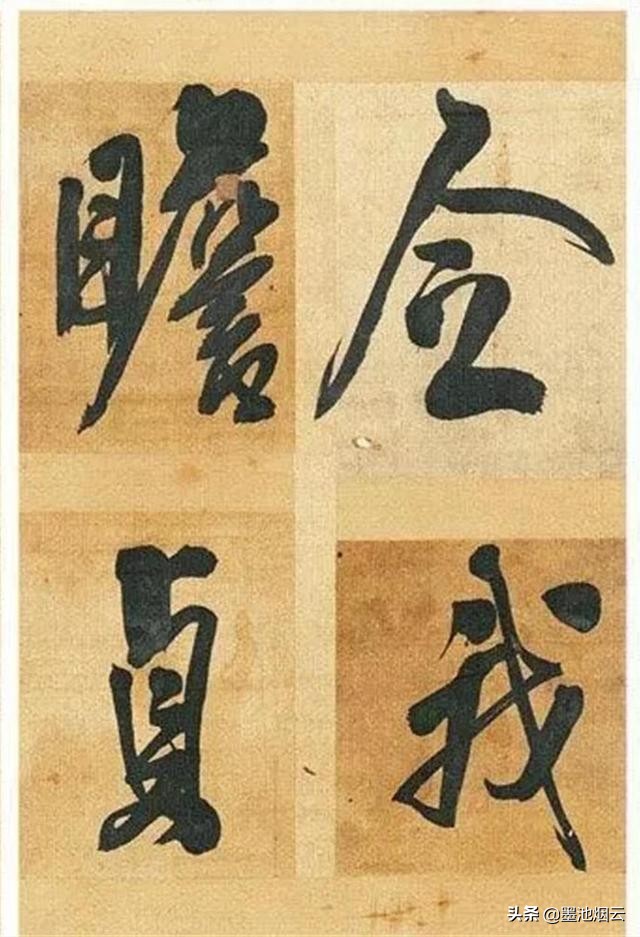 我
瞻
貞
头条 @墨池烟云